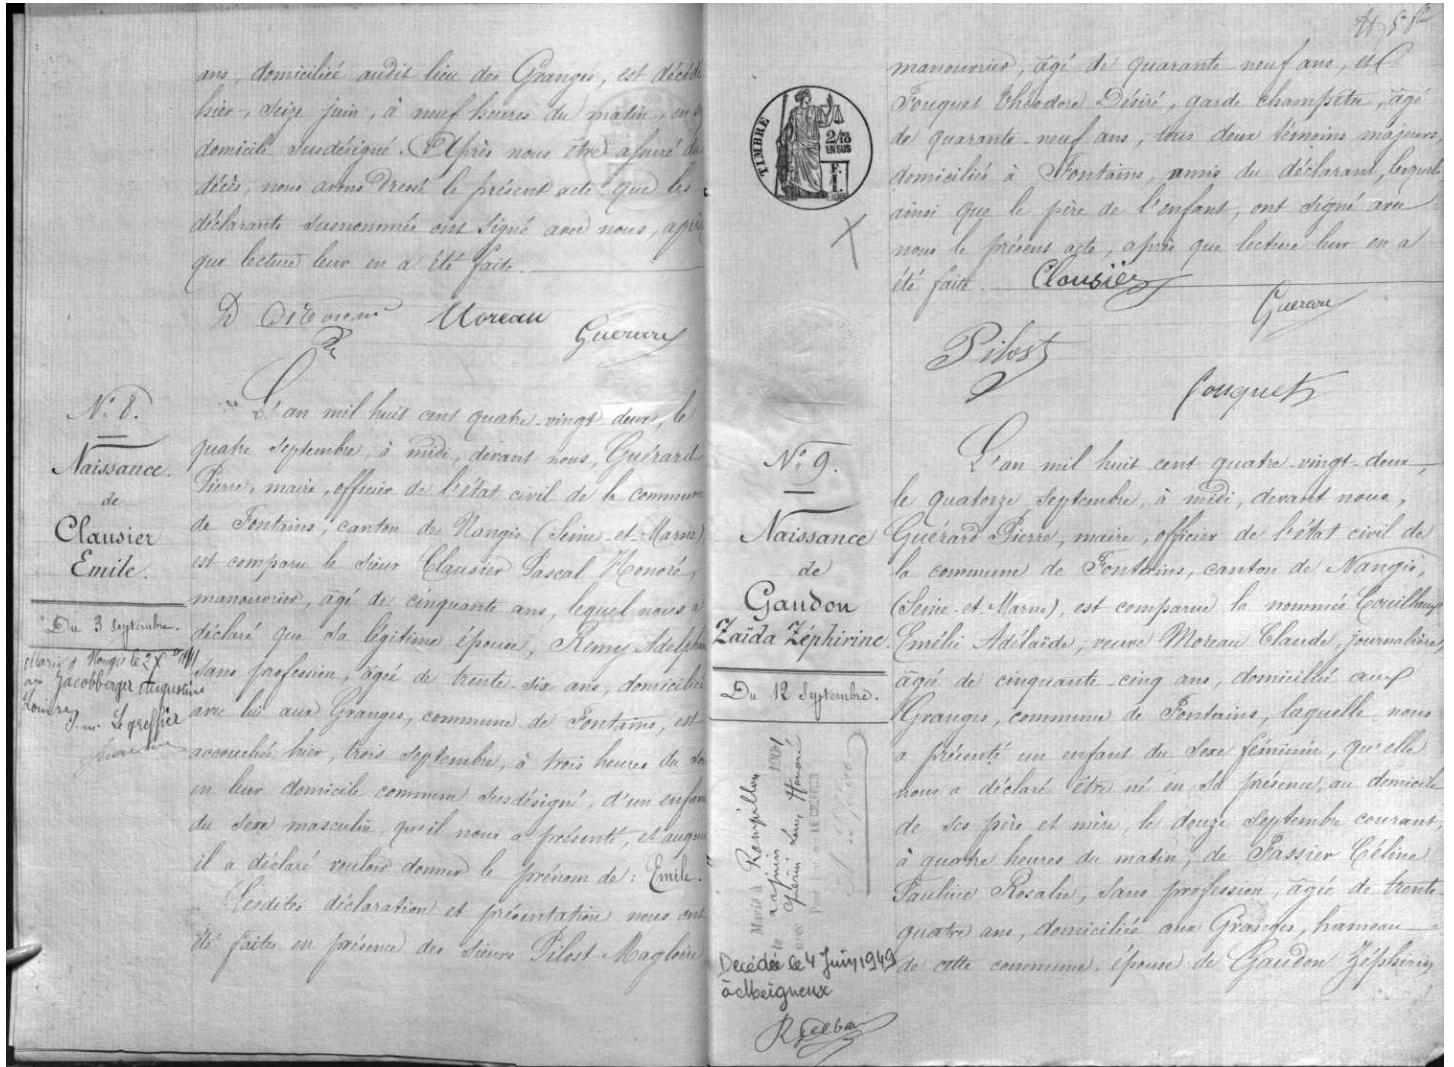 ans, domiciliée audit lieu des Granges, est décédé
hier, seize juin, à neuf heures du matin, en
domicile susdésigné. Après nous être assuré du
décès, nous avons dressé le présent acte que les
déclarants susnommés ont signé avec nous, après
que lecture leur en a été faite.
Moreau
Guérard
N° 8.
Naissance
de
Clausier
Emile.
Du 3 septembre.
Marié à Nangis le
Jacobberger Augustine
Louise
Le greffier
L'an mil huit cent quatre-vingt-deux, le
quatre septembre, à midi, devant nous, Guérard
Pierre, maire, officier de l'état civil de la commune
de Fontains, canton de Nangis (Seine-et-Marne)
est comparu le sieur Clausier Pascal Honoré,
manouvrier, âgé de cinquante ans, lequel nous a
déclaré que sa légitime épouse, Remy Adelphine
sans profession, âgée de trente-six ans, domiciliée
avec lui aux Granges, commune de Fontains, est
accouchée hier, trois septembre, à trois heures du soir
en leur domicile commun susdésigné, d'un enfant
du sexe masculin, qu'il nous a présenté, et auquel
il a déclaré vouloir donner le prénom de : Emile.
Lesdites déclaration et présentation nous ont
été faites en présence des sieurs Pilost Magloire,
manouvrier, âgé de quarante-neuf ans, et
Fouquet Théodore Désiré, garde champêtre, âgé
de quarante-neuf ans, tous deux témoins majeurs,
domiciliés à Fontains, amis du déclarant, lesquels
ainsi que le père de l'enfant, ont signé avec
nous le présent acte, après que lecture leur en a
été faite.
Clausier
Guérard
Pilost
Fouquet
TIMBRE
2/10
EN SUS
F.
1.
N° 9.
Naissance
de
Gaudon
Zaïda Zéphirine.
Du 12 Septembre.
Marié à Rampillon
le juin
avec Louis Honoré
LE GREFFIER
Décédée le 4 Juin 1949
L'an mil huit cent quatre-vingt-deux,
le quatorze septembre, à midi, devant nous,
Guérard Pierre, maire, officier de l'état civil de
la commune de Fontains, canton de Nangis,
(Seine-et-Marne), est comparue la nommée
Emélie Adélaïde, veuve Moreau Claude, journalière,
âgée de cinquante-cinq ans, domiciliée aux
Granges, commune de Fontains, laquelle nous
a présenté un enfant du sexe féminin, qu'elle
nous a déclaré être né en sa présence, au domicile
de ses père et mère, le douze septembre courant,
à quatre heures du matin, de Passier Céline
Pauline Rosalie, sans profession, âgée de trente-
quatre ans, domiciliée aux Granges, hameau
de cette commune, épouse de Gaudon Zéphirin